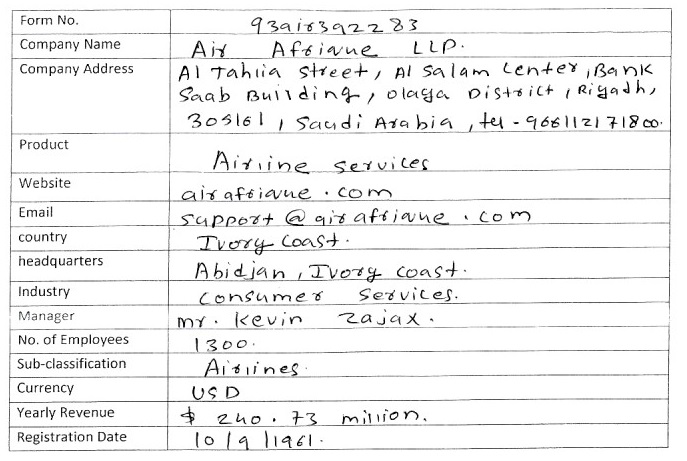 Form No. 939ir392283
Company Name Air Afriave LLP.
Company Address Al Tahlia street, Al Salam Center, Bank
Saab Building, Olaya District, Riyadh,
305161, Saudi Arabia, tel - 966112171800.
Product Airline services
Website airafriave.com
Email support@airafriave.com
country Ivory Coast.
headquarters Abidjan, Ivory coast.
Industry Consumer Services.
Manager mr. Kevin Zajax.
No. of Employees 1300.
Sub-classification Airlines.
Currency USD
Yearly Revenue $ 240.73 million.
Registration Date 10/9/1961.